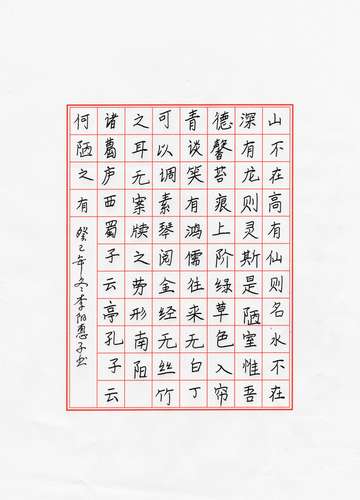 山不在高有仙则名水不在
深有龙则灵斯是陋室惟吾
德馨苔痕上阶绿草色入帘
青谈笑有鸿儒往来无白丁
可以调素琴阅金经无丝竹
之耳无案牍之劳形南阳
诸葛庐西蜀子云亭孔子云
何陋之有 癸巳年冬李阳惠子书